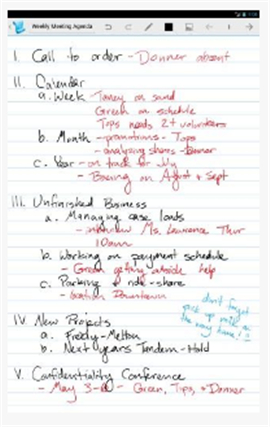 Weekly Meeting Agenda
I. Call to order - Donner absent
II. Calendar
a. Week Taney on sand
Green on schedule
Tops needs 2+ volunteers
b. Month - promotions - Tops
- analyzing shares - Donner
c. Year - on track for July
- Boeing on August + Sept
III. Unfinished Business
a. Managing case loads
- interview Ms. Lawrence Thur
10am
b. Working on payment schedule
- Green getting outside help
c. Parking & ride-share
- location Downtown
don't forget
pick up milk on
the way home!
IV. New Projects
a. Fredy - Melton
b. Next years Tandem - Hold
V. Confidentiality Conference
- May 3-6 - Green, Tips, + Donner